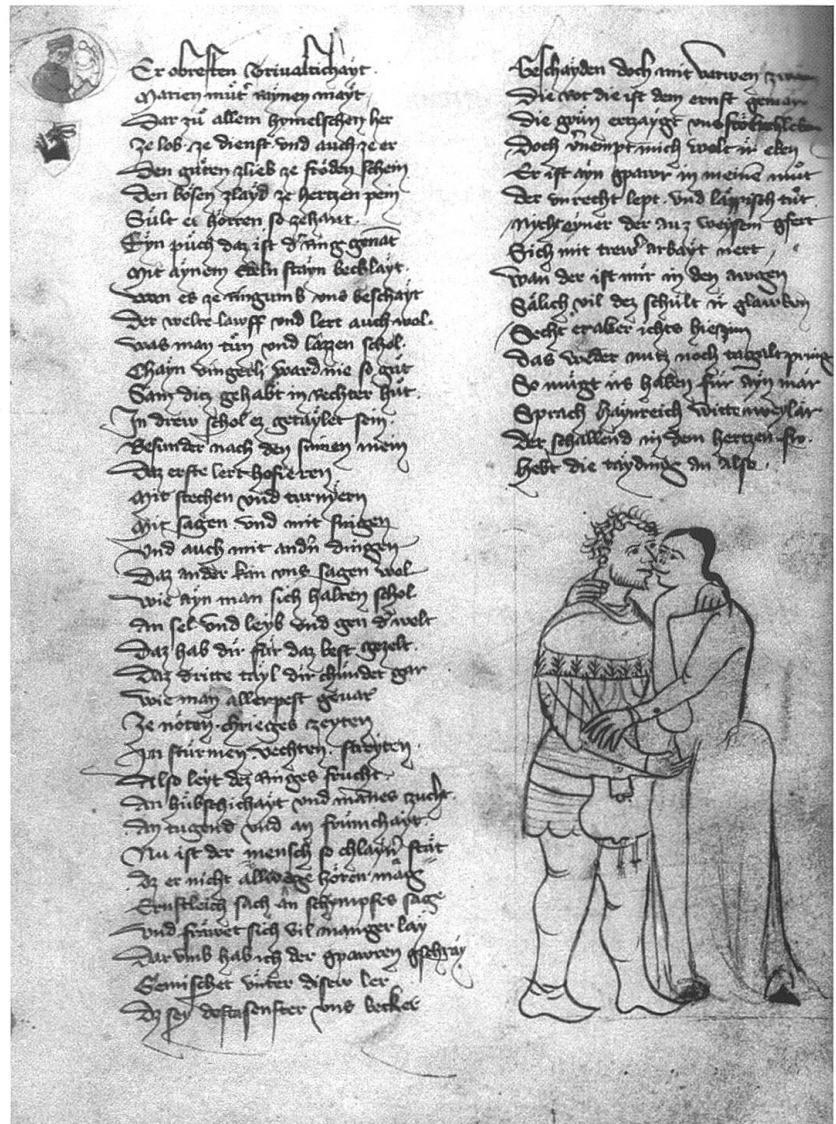 Er obresten Trivaltichayt
Marien müter raynen mayt
Dar zuo allem hymelschen her
Ze lob ze dienst und auch ze er
Den guoten zlieb ze fröden schein
Den bösen zlayd ze hertzen pein
Sült er hörren so zehant
Eyn puoch daz ist der Ring genant
Mit aynem edeln stayn bechlayt
Wan es ze ringumb uns beschayt
Der welte lawff und lert auch wol
Was man tuon und lazzen schol
Chain vingerli ward nie so guot
Sam ditz gehabt in rechter huot
In drew schol es getaylet sein
Besunder nach den sinnen mein
Daz erste lert hofieren
Mit stechen und turnyern
Mit sagen und mit singen
Und auch mit andern dingen
Daz ander kan uns sagen wol
Wie ayn man sich halten schol
An sel und leyb und gen der welt
Daz hab dir für daz best gezelt
Daz dritte tayl dir chündet gar
Wie man allerpest gevar
Ze nöten chrieges zeyten
In stürmen vechten streyten
Also leyt dez ringes frucht
An hübschichayt und mannes zucht
An tugend und an frümchayt
Nu ist der mensch so chlayner stät
Dz er nicht allwege hören mag
Ernstleich sach an schympfes sag
Und fräwet sich vil manger lay
Dar umb hab ich der gpawren gschray
Gemischet unter disew ler
Dz sey dest senfter uns becher
Geschayden doch mit varwen zwain
Die rot die ist dem ernst gemain
Die grün ertzaygt uns törpelleben
Doch vernempt mich welt ir eben
Er ist ayn gpawr in meinem muot
Der unrecht lept und läppisch tuot
Nicht eyner der auz weysem gfert
Sich mit trewer arbayt nert
Wan der ist mir in den augen
Sälich vil dez schült ir glawben
Secht er aber ichts hiezuo
Das weder nutz noch tagalt pring
So mügt irs haben für ayn mär
Sprach Haynreich Wittenweylär
Der schallend in dem hertzen fro
Hebt die täyding an also